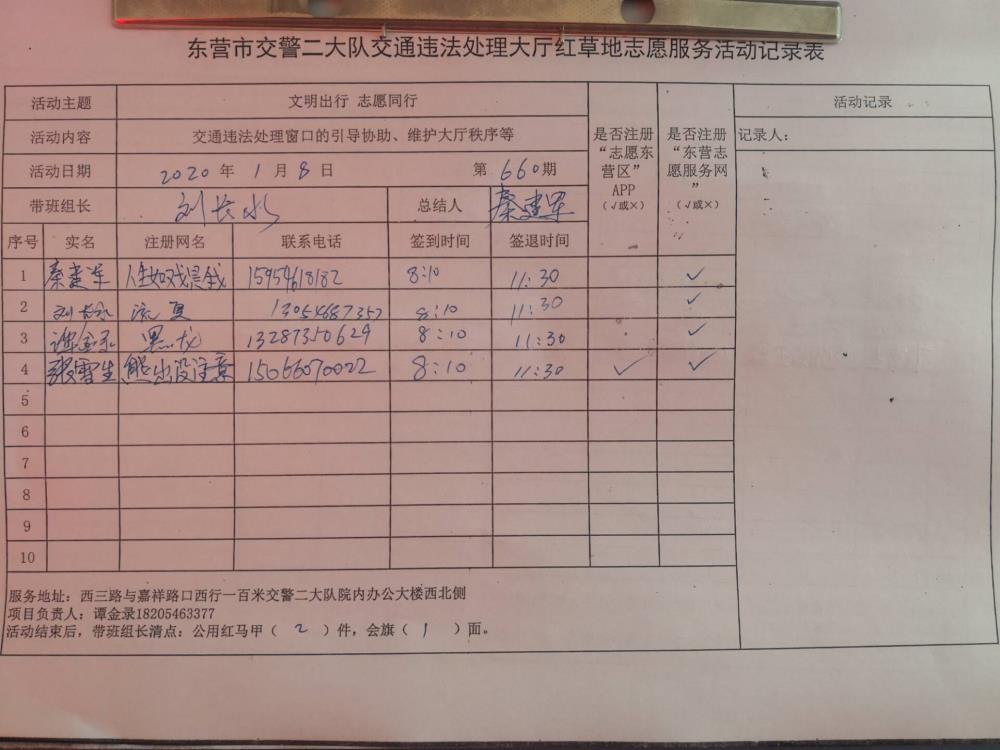 东营市交警二大队交通违法处理大厅红草地志愿服务活动记录表
活动主题 文明出行 志愿同行
活动记录
活动内容 交通违法处理窗口的引导协助、维护大厅秩序等
是否注册“志愿东营区”APP（√或×）
是否注册“东营志愿服务网”（√或×）
记录人：
活动日期 2020 年 1 月 8 日 第 660 期
带班组长 刘长水 总结人 秦建军
序号 实名 注册网名 联系电话 签到时间 签退时间
1 秦建军 人生如戏是钱 15954618182 8:10 11:30 ✓
2 刘长水 流夏 13054687352 8:10 11:30 ✓
3 谭金录 黑龙 13287350629 8:10 11:30 ✓
4 张雪生 熊出没注意 15066070022 8:10 11:30 ✓ ✓
5
6
7
8
9
10
服务地址：西三路与嘉祥路口西行一百米交警二大队院内办公大楼西北侧
项目负责人：谭金录18205463377
活动结束后，带班组长清点：公用红马甲（ 2 ）件，会旗（ 1 ）面。